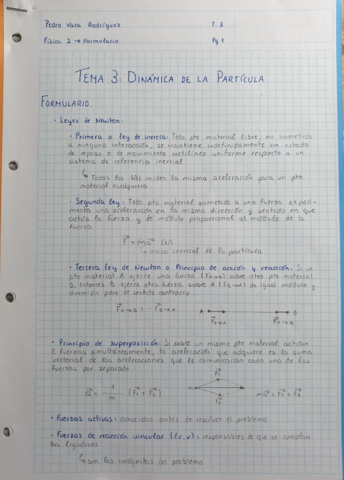 Pedro Vara Rodríguez T. 3
Física 2 → Formulario Pg. 1
TEMA 3: DINÁMICA DE LA PARTÍCULA
FORMULARIO
• Leyes de Newton:
• Primera o ley de inercia: Todo pto material libre, no sometido
a ninguna interacción, se mantiene indefinidamente en estado
de reposo o de movimiento rectilíneo uniforme respecto a un
sistema de referencia inercial
↳ Todos los miden la misma aceleración para un pto
material cualquiera
• Segunda ley: Todo pto material sometido a una fuerza experi-
menta una aceleración en la misma dirección y sentido en que
actúa la fuerza y de módulo proporcional al módulo de la
fuerza
F = ma (N)
↳ masa inercial de la partícula
• Tercera ley de Newton o Principio de acción y reacción: Si un
pto material A ejerce una fuerza sobre otro pto material
B, entonces B ejerce otra fuerza sobre A de igual módulo y
dirección pero de sentido contrario
A B
• Principio de superposición: Si sobre un mismo pto material actúan
2 fuerzas simultáneamente, la aceleración que adquiere es la suma
vectorial de las aceleraciones que le comunicarían cada una de las
fuerzas por separado
• Fuerzas activas: conocidas antes de resolver el problema
• Fuerzas de reacción vincular: responsables de que se cumplan
las ligaduras
↳ son las incógnitas del problema